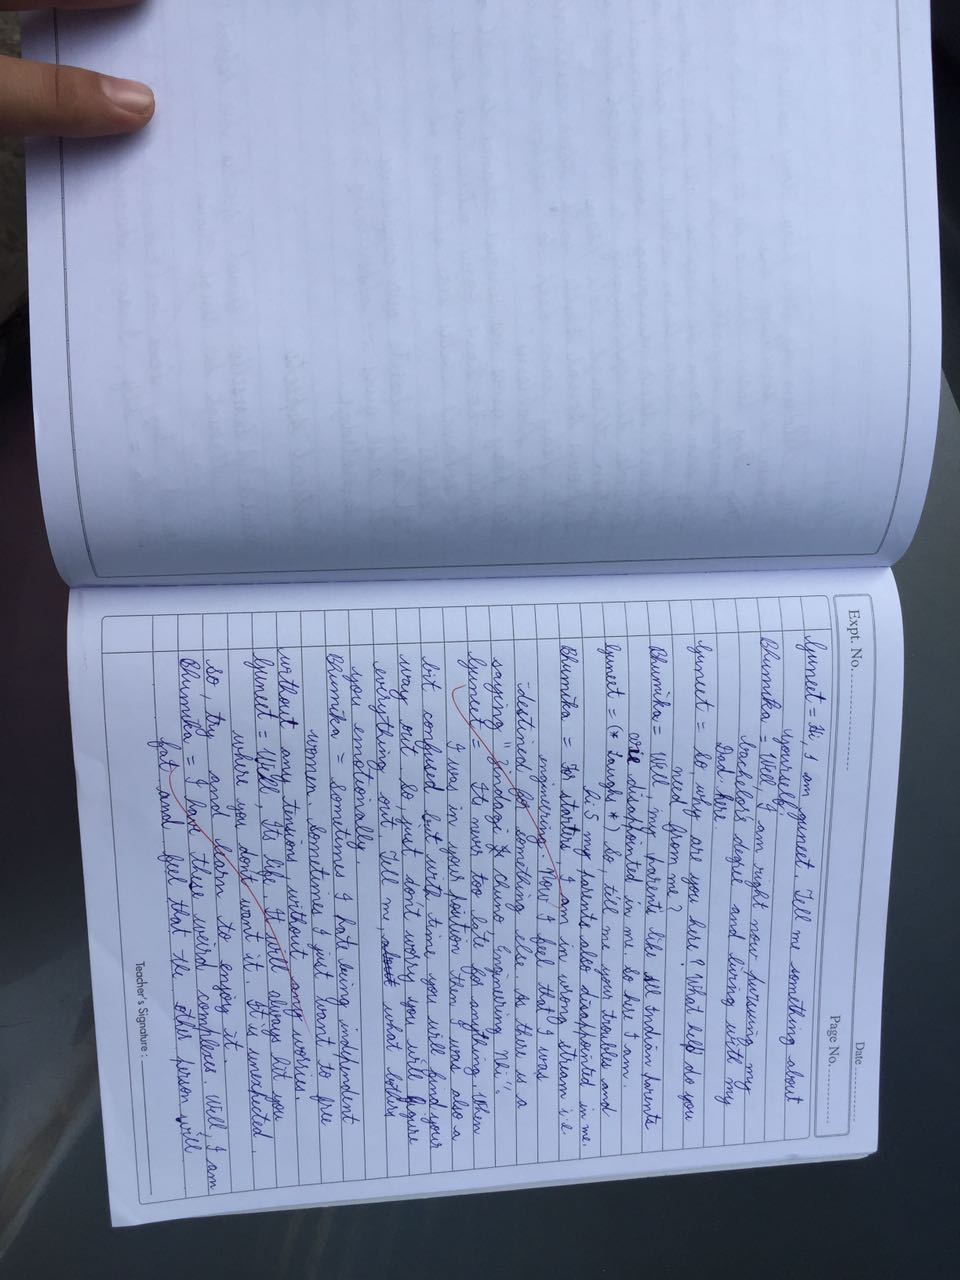 Expt. No.
Date
Page No.
Guneet = Hi, I am guneet. Tell me something about
yourself.
Bhumika = Well, I am right now pursuing my
bachelor's degree and living with my
Dad. here.
Guneet = So, why are you here? What help do you
need from me?
Bhumika = Well, my parents like all Indian parents
are disappointed in me. So here I am.
Guneet = (* Laughs *) So, tell me your troubles and
hi 5 my parents also disappointed in me.
Bhumika = For starters, I am in wrong stream i.e.
engineering. Now I feel that I was
destined for something else. As there is a
saying "Zindagi Chuno, Engineering Nhi".
Guneet = Its never too late for anything. When
I was in your position then I was also a
bit confused but with time you will find your
way out. So, just don't worry you will figure
everything out. Tell me, about what bothers
you emotionally.
Bhumika = Sometimes I hate being independent
women. Sometimes I just want to free
without any tensions, without any worries.
Guneet = Well, Its life. It will always hit you
where you dont want it. It is unexpected.
So, try and learn to enjoy it.
Bhumika = I have these weird complexes. Well, I am
fat and feel that the other person will
Teacher's Signature :